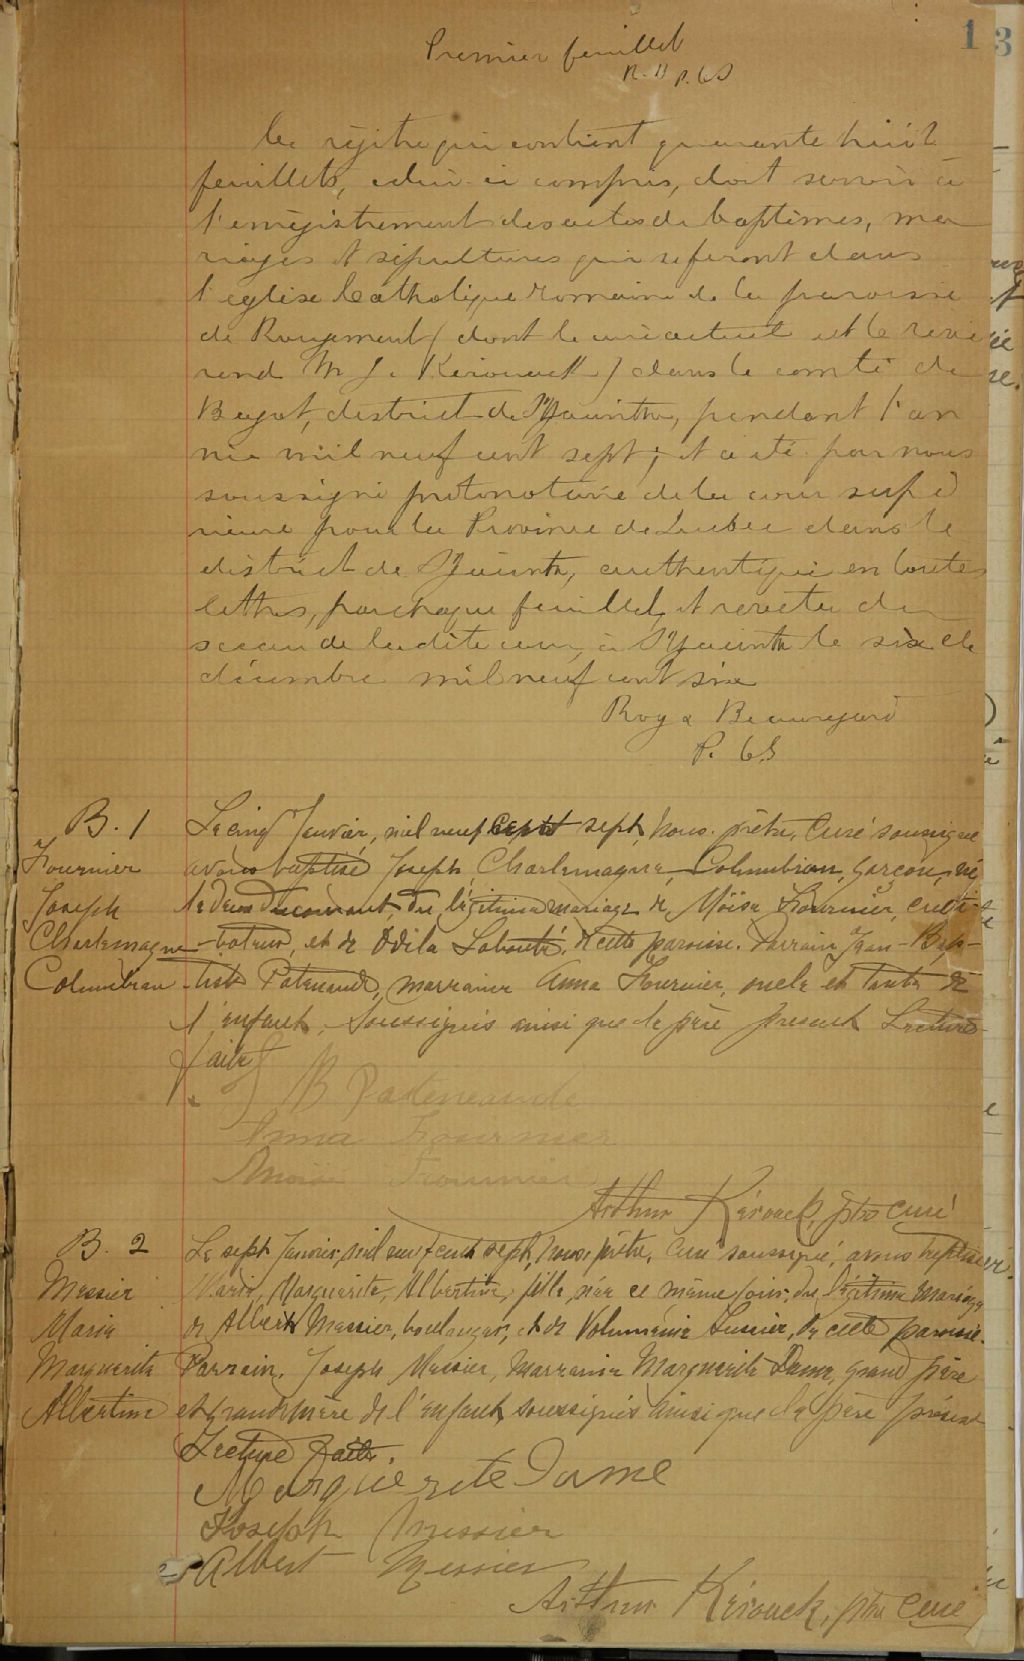 1 3
Premier feuillet
R. B P. C S
Ce régitre qui contient quarante huit
feuillets, celui-ci compris, doit servir à
l'enrégistrement des actes de baptêmes, ma
riages et sépultures qui se feront dans
l'église Catholique romaine de la paroisse
de Rougemont (dont le curé actuel est le révé
rend M J. Kérouack) dans le comté de
Bagot, district de St Hyacinthe, pendant l'an
née mil neuf cent sept; et a été par nous
soussigné protonotaire de la cour supé
rieure pour la Province de Québec dans le
district de St Hyacinthe, authentiqué en toutes
lettres, sur chaque feuillet, et revêtu du
sceau de la dite cour, à St Hyacinthe le six de
décembre mil neuf cent six
Roy & Beauregard
P. C S
B. 1 Le cinq Janvier, mil neuf sept, nous prêtre, Curé soussigné
Fournier avons baptisé Joseph, Charlemagne, Colombian, garçon, né
Joseph le deux du courant, du légitime mariage de Moïse Fournier, culti-
Charlemagne -vateur, et de Odila Labonté, de cette paroisse. Parrain Jean-Bap-
Colombian -tiste Patenaude, marraine Anna Fournier, oncle et tante de
l'enfant, soussignés ainsi que le père présent Lecture
faite
J B Pateneaude
Anna Fournier
Moïse Fournier
Arthur Kérouack, ptre curé
B. 2 Le sept Janvier, mil neuf cent sept, nous prêtre, curé soussigné, avons baptisé
Messier Marie, Marguerite, Albertine, fille, née ce même jour, du légitime mariage
Maria de Albert Messier, boulanger, et de Voluménie Lussier, de cette paroisse.
Marguerite Parrain, Joseph Messier, marraine Marguerite Dame, grand père
Albertine et grand'mère de l'enfant, soussignés ainsi que le père présent
Lecture faite.
Marguerite Dame
Joseph Messier
Albert Messier
Arthur Kérouack, ptre Curé